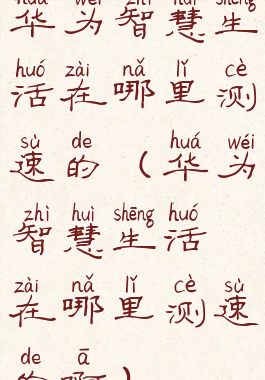 huá wéi zhì huì shēng
华为智慧生
huó zài nǎ lǐ cè
活在哪里测
sù de huá wéi
速的（华为
zhì huì shēng huó
智慧生活
zài nǎ lǐ cè sù
在哪里测速
de ā
的啊）